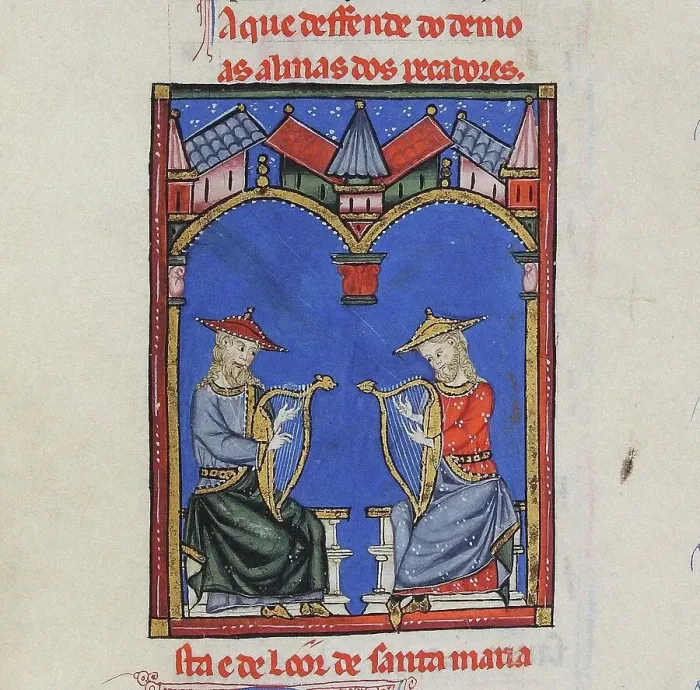 A que deffende do demo
as almas dos pecadores.
sta e de loor de santa maria